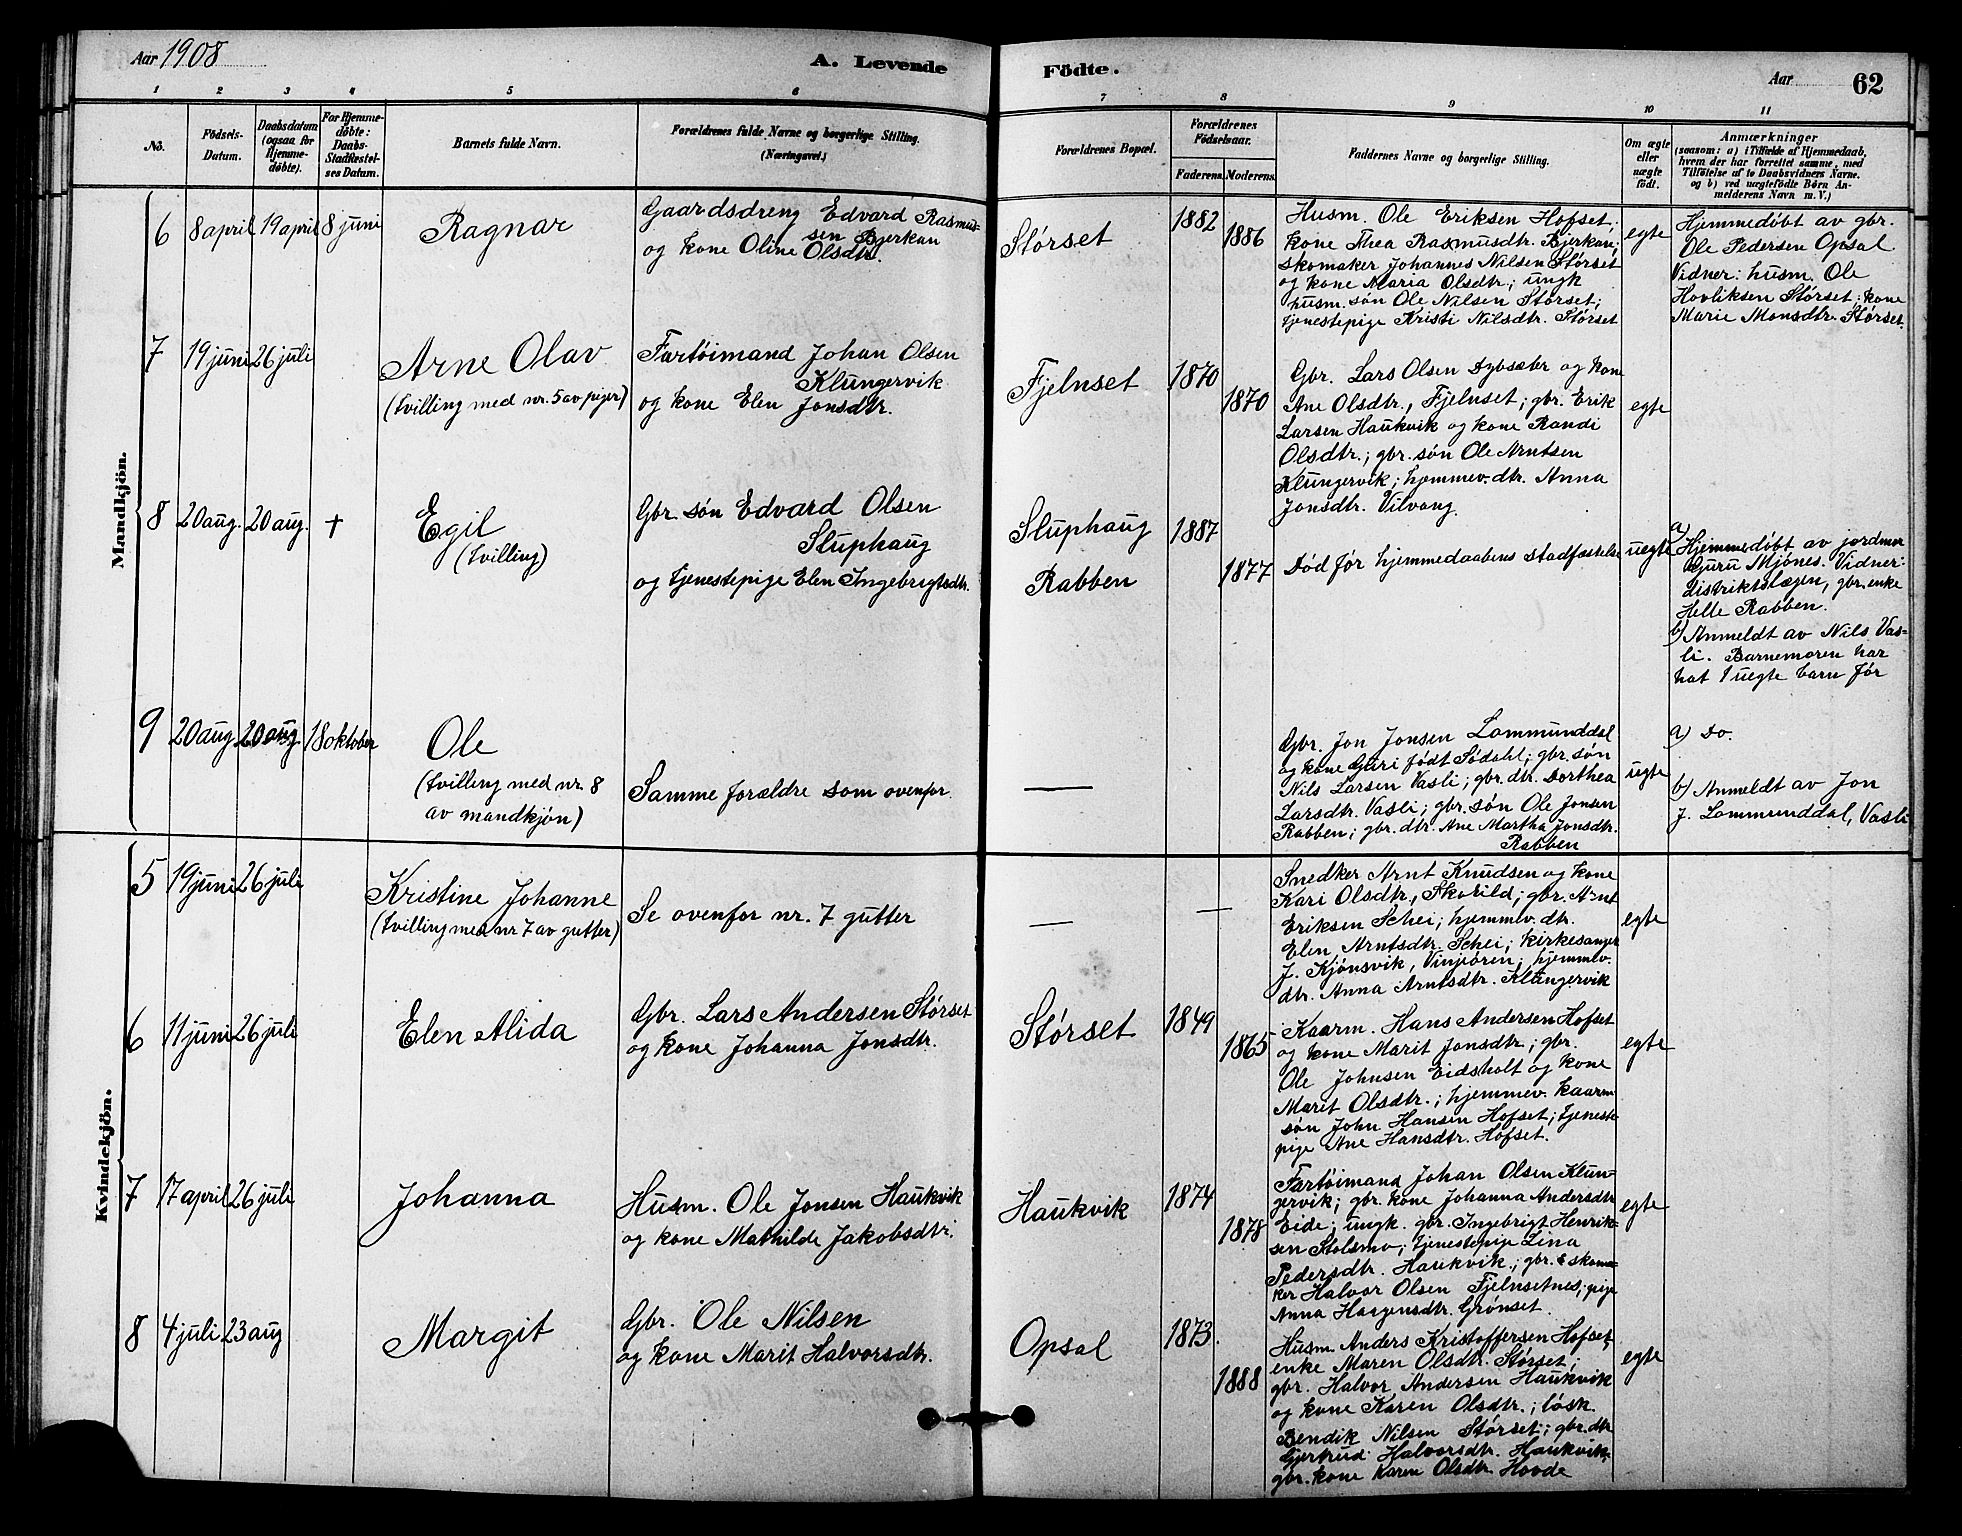 Aar 1908
A. Levende
Födte.
Aar
62
1
2
3
4
5
6
7
8
9
10
11
No.
Födsels-
Datum.
Daabsdatum
(ogsaa for
Hjemme-
døbte).
For Hjemme-
døbte:
Daabs-
Stadfæstel-
ses Datum.
Barnets fulde Navn.
Forældrenes fulde Navne og borgerlige Stilling.
(Næringsvei.)
Forældrenes Bopæl.
Forældrenes
Födselsaar.
Faderens.
Moderens.
Faddernes Navne og borgerlige Stilling.
Om ægte
eller
uægte
födt.
Anmærkninger
(saasom: a) i Tilfælde af Hjemmedaab,
hvem der har forrettet samme, med
Tilföielse af to Daabsvidners Navne.
og b) ved uægtefödte Börn An-
melderens Navn m. V.)
Mandkjön.
6
8 april
19 april
8 juni
Ragnar
Gaardsdreng Edvard Rasmus-
sen Bjerkan
og kone Oline Olsdtr.
Størset
1882
1886
Husm. Ole Eriksen Hofset;
kone Thea Rasmusdtr. Bjerkan;
skomaker Johannes Nilsen Størset
og kone Maria Olsdtr; ungk.
husm. søn Ole Nilsen Størset;
tjenestepige Kristi Nilsdtr. Størset
egte
Hjemmedøbt av gbr.
Ole Pedersen Opsal
Vidner: husm. Ole
Hovliksen Størset; kone
Marie Monsdtr. Størset.
7
19 juni
26 juli
Arne Olav
(tvilling med nr. 5 av piger)
Fartøimand Johan Olsen
Klungervik
og kone Elen Jonsdtr.
Fjelnset
1870
1870
Gbr. Lars Olsen Dybsæter og kone
Ane Olsdtr., Fjelnset; gbr. Erik
Larsen Haukvik og kone Randi
Olsdtr.; gbr. søn Ole Arntsen
Klungervik; hjemmev. dtr. Anna
Jonsdtr. Vilvang.
egte
8
20 aug.
20 aug.
+
Egil
(tvilling)
Gbr. søn Edvard Olsen
Sluphaug
og tjenestepige Elen Ingebrigtsdtr.
Sluphaug
Rabben
1887
1877
Død før hjemmedaabens stadfæstelse
uegte
a)
Hjemmedøbt av jordmor
Guru Mjönes. Vidner:
distriktslægen, gbr. enke
Helle Rabben.
b) Anmeldt av Nils Vas-
li. Barnemoren har
hat 1 uegte barn før
9
20 aug
20 aug
18 oktober
Ole
(tvilling med nr. 8
av mandkjøn)
Samme forældre som ovenfor.
—
Gbr. Jon Jonsen Lommunddal
og kone Guri født Södahl; gbr. søn
Nils Larsen Vasli; gbr. dtr. Dorthea
Larsdtr. Vasli; gbr. søn Ole Jonsen
Rabben; gbr. dtr. Ane Martha Jonsdtr.
Rabben
uegte
a) Do.
b) Anmeldt av Jon
J. Lommunddal, Vasli
Kvindekjön.
5
19 juni
26 juli
Kristine Johanne
(tvilling med nr 7 av gutter)
Se ovenfor nr. 7 gutter
—
—
Snedker Arnt Knudsen og kone
Kari Olsdtr., Skorild; gbr. Arnt
Eriksen Schei; hjemmev. dtr.
Elen Arntsdtr. Schei; kirkesanger
J. Kjönsvik, Vinjeören; hjemmev.
dtr. Anna Arntsdtr. Klungervik
egte
6
11 juni
26 juli
Elen Alida
Gbr. Lars Andersen Størset
og kone Johanna Jonsdtr.
Størset
1849
1865
Kaarm. Hans Andersen Hofset
og kone Marit Jonsdtr; gbr.
Ole Johnsen Eidsholt og kone
Marit Olsdtr.; hjemmev. kaarm
søn John Hansen Hofset; tjeneste-
pige Ane Hansdtr. Hofset.
egte
7
17 april
26 juli
Johanna
Husm. Ole Jonsen Haukvik
og kone Mathilde Jakobsdtr.
Haukvik
1874
1878
Fartøimand Johan Olsen Klun-
gervik; gbr. kone Johanna Andersdtr
Eide; ungk. gbr. Ingebrigt Henrik-
sen Stolsmo; tjenestepige Lina
Pedersdtr. Haukvik; gbr. & skoma-
ker Halvor Olsen Fjelnsetnes; pige
Anna Haagensdtr. Grönset.
egte
8
4 juli
23 aug
Margit
Gbr. Ole Nilsen
og kone Marit Halvorsdtr.
Opsal
1873
1888
Husm. Anders Kristoffersen Hofset,
enke Maren Olsdtr. Størset;
gbr. Halvor Andersen Haukvik
og kone Karen Olsdtr.; løsk.
Bendik Nilsen Størset; gbr. dtr
Gjertrud Halvorsdtr. Haukvik;
gbr. kone Karen Olsdtr. Hovde
egte